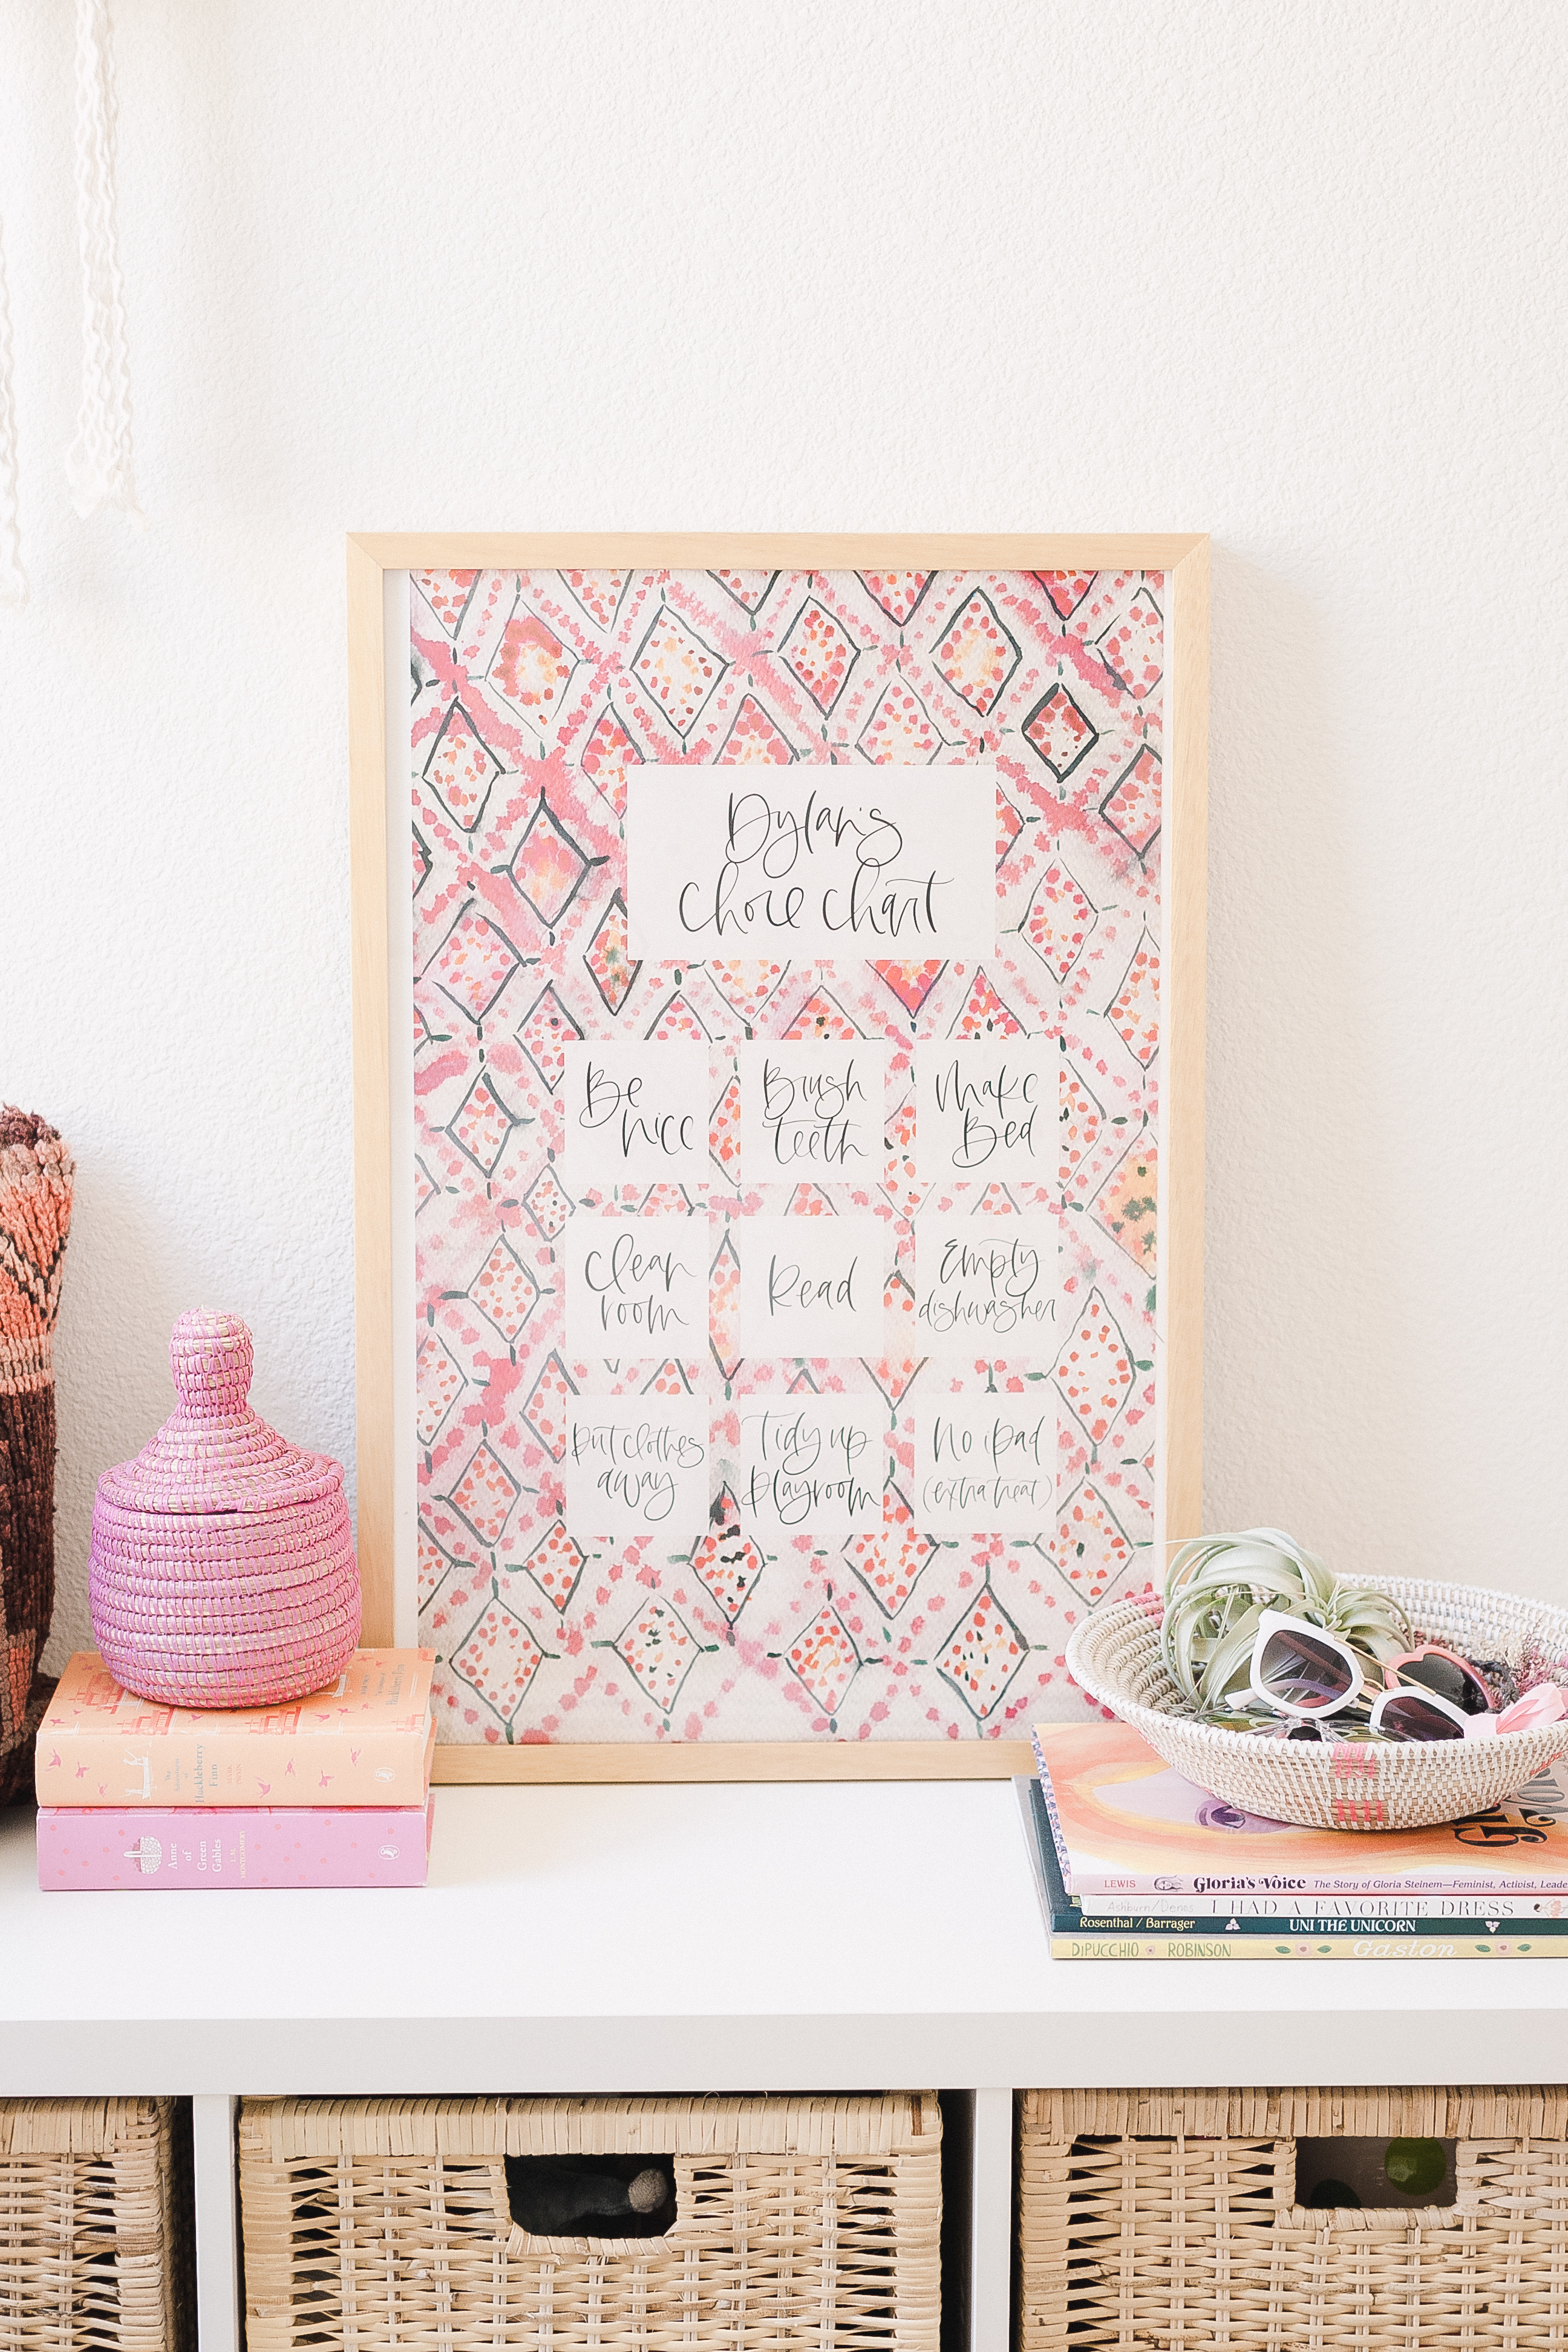 Dylan's
chore chart
Be
nice
Brush
teeth
Make
Bed
Clean
room
Read
Empty
dishwasher
Put clothes
away
Tidy up
playroom
No iPad
(extra treat)
The
Adventures of
Huckleberry
Finn
MARK TWAIN
Anne
of
Green
Gables
L. M.
MONTGOMERY
LEWIS Gloria's Voice The Story of Gloria Steinem—Feminist, Activist, Leade
Ashburn/Denos I HAD A FAVORITE DRESS
Rosenthal / Barrager UNI THE UNICORN
DiPUCCHIO ROBINSON Gaston